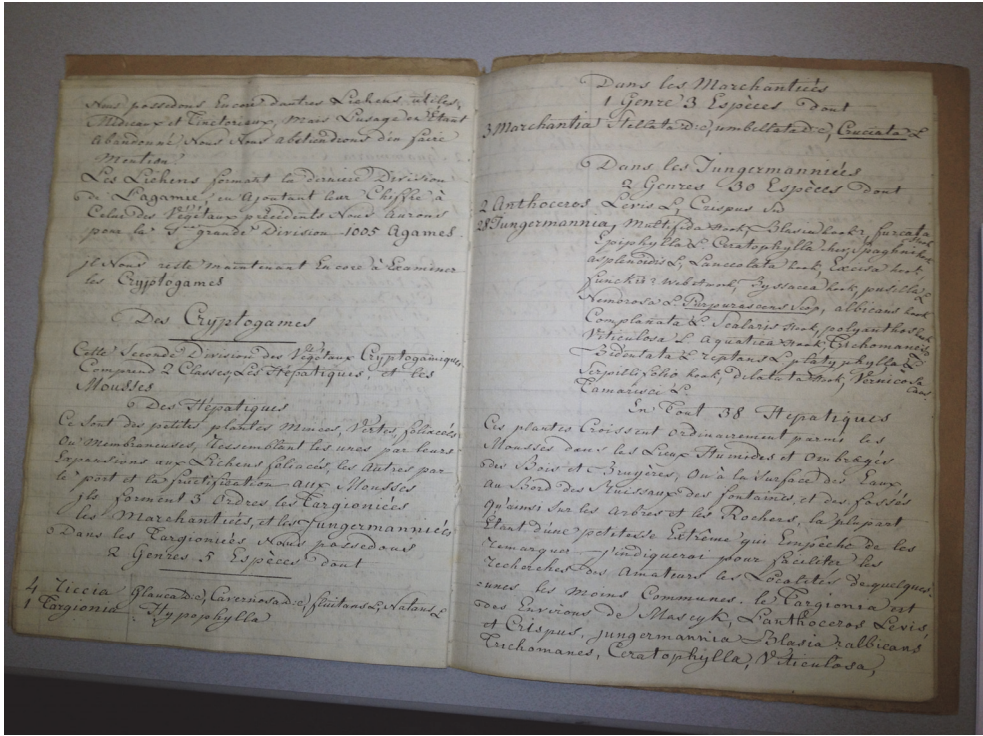 Nous possedons Encore dautres Lichens, utiles,
Medicaux et Tinctoriaux, mais Lusage en Etant
Abandonné, Nous Nous abstiendrons den faire
Mention.
Les Lichens formant la derniere Division
de Lagamie, en ajoutant leur Cheffre à
Celui des Végétaux précédents Nous aurons
pour la 1ere grande Division 1005 Agames.
jl Nous reste maintenant Encore à Examiner
les Cryptogames
Des Cryptogames
Cette Seconde Division des Végétaux Cryptogamiques
Comprend 2 Classes, Les Hépatiques, et les
Mousses
Des Hépatiques
Ce sont des petites plantes Minces, Vertes, foliacées
Ou Membraneuses, ressemblant les unes par leurs
Expansions aux Lichens foliacés, les Autres par
le port et la fructification aux Mousses
jls forment 3 Ordres les Targioniées
les Marchantiées, et les Jungermanniées
Dans les Targioniées Nous possedons
2 Genres 5 Espèces dont
4 Riccia Glauca D:C, Cavernosa D:C, fluitans L, Natans L
1 Targionia Hypophylla
Dans les Marchantiées
1 Genre 3 Espèces dont
3 Marchantia Stellata D:C, umbellata D:C, Cruciata L
Dans les Jungermanniées
2 Genres 30 Espèces dont
2 Anthoceros Levis L, Crispus Sw
28 Jungermannia, Multifida Hook, Blasia hook, furcata Hook
Epiphylla L. Ceratophylla her, Spagni hook
asplenoidis L, Lanceolata hook, Excisa hook,
functiit Web et Mohr, Byssacea hook, pusilla L
Nemorosa L Purpurascens Scop, albicans hook
Complanata L. Scalaris Hook, polyanthos hook
Viticulosa L Aquatica Hook, Trichomanis
Bidentata L reptans L platyphylla L
Serpillifolia hook, Dilatata Hook, Vernicosa
Tamarisci L.
En Tout 38 Hepatiques
Ces plantes Croissent Ordinairement parmi les
Mousses dans les Lieux Humides et Ombragés
des Bois et Bruyères, Ou à la Surface des Eaux
au Bord des Ruissaux, des fontaines, et des fossés
Qu'ainsi Sur les Arbres et les Rochers, la plupart
Etant d'une petitesse Extrême qui Empeche de les
remarquer j'indiquerai pour faciliter les
recherches des Amateurs les Localités de quelques
unes les moins Communes. le Targionia est
des Environs de Maseyk, Lanthoceros Levis,
et Crispus, jungermannia Blasia, albicans
Trichomanes, Ceratophylla, Viticulosa,